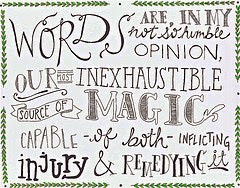 WORDS ARE, IN MY
not so humble
OPINION,
OUR MOST INEXHAUSTIBLE
SOURCE OF MAGIC,
CAPABLE -of both- INFLICTING
injury & REMEDYING it